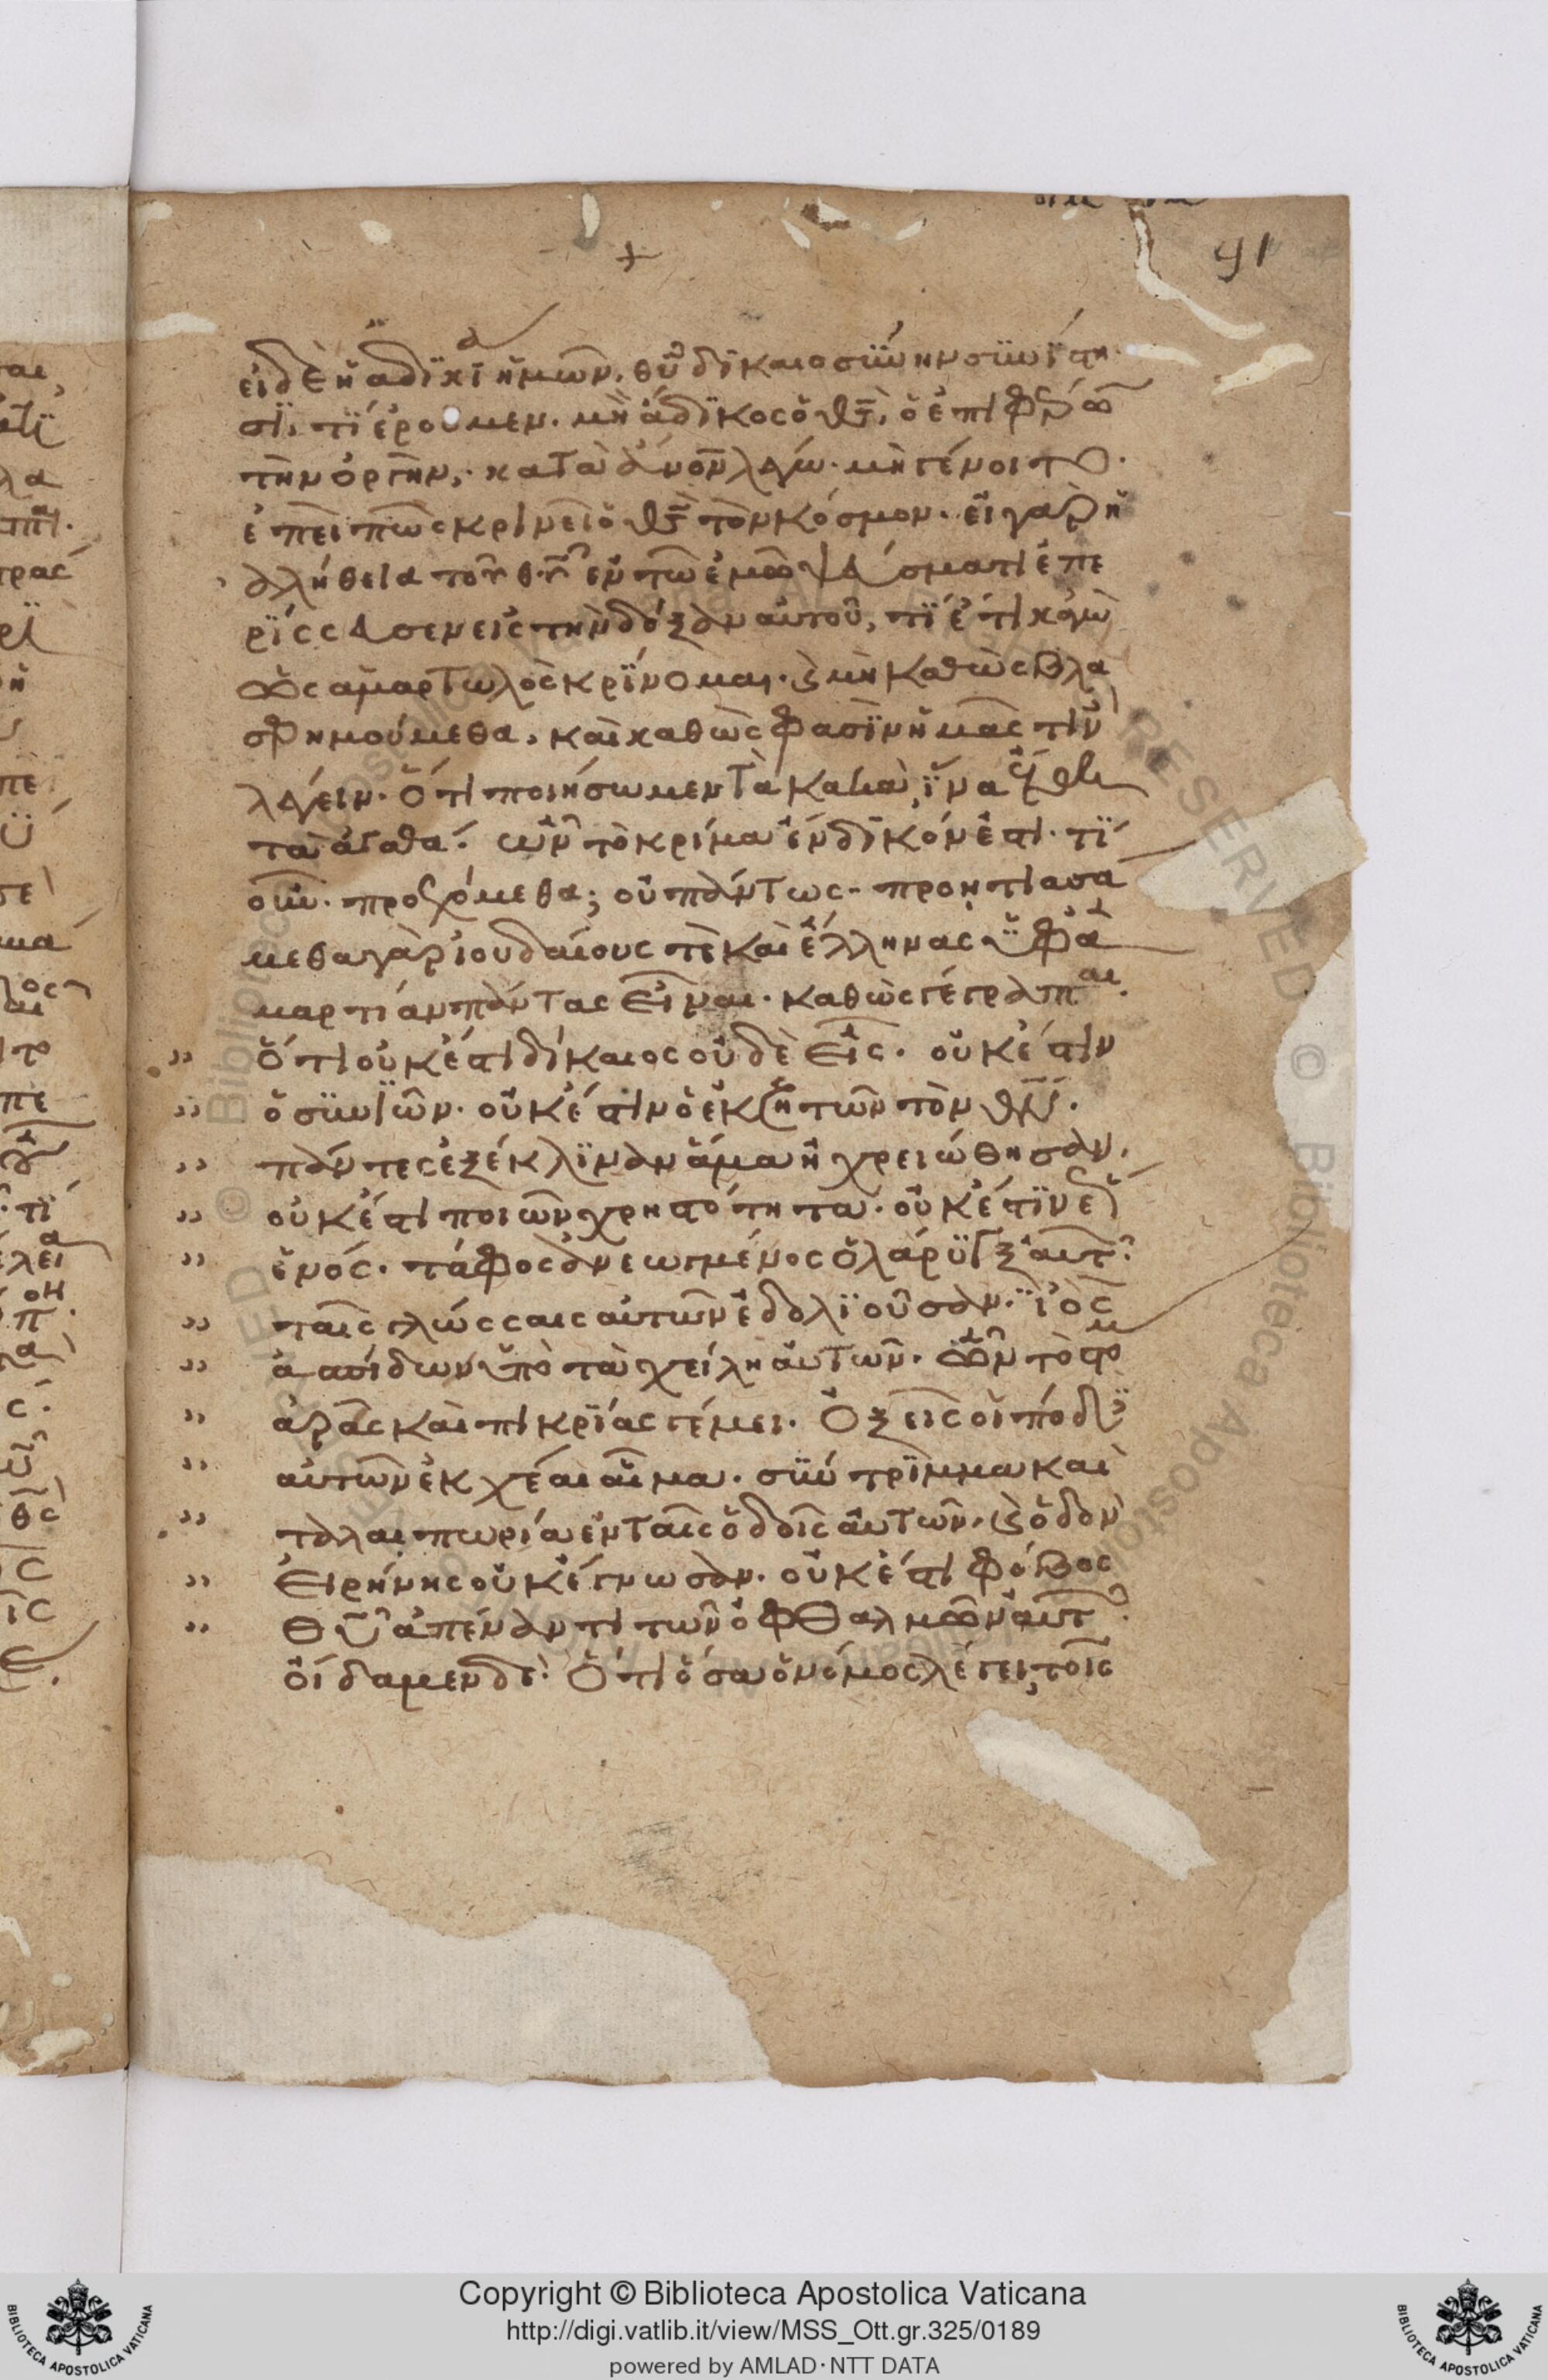 +
91
εἰ δὲ ἡ ἀδϊκΐα ἡμῶν, θῦ δϊκαιοσϋνην σϋνίστη
σϊ. τΐ ἐροῦμεν. μὴ ἄδϊκος ὁ θς̅, ὁ ἐπιφέρων
τὴν ὀργὴν, κατὰ ἄνον λέγω. μὴ γένοιτο.
ἐπεὶ πῶς κρίνεῖ ὁ θς̅ τὸν κόσμον. εἰ γὰρ ἡ
ἀλήθεια τοῦ θυ̅ ἐν τῶ ἐμῶ ψεύσματι ἐπε
ρΐσσευσεν εἰς τὴν δόξαν αὐτοῦ, τΐ ἔτι κἀγὼ
ὡς ἁμαρτωλὸς κρΐνομαι. καὶ μὴ καθὼς βλα
σφημούμεθα, καὶ καθὼς φασΐν ἡμᾶς τινὲς
λέγειν. ὅτι ποιήσωμεν τὰ κακὰ, ἵ̈να ἔλθη
τὰ ἀγαθά. ὧν τὸ κρίμα ἔνδϊκόν ἐστι. τΐ
οὖν. προεχόμεθα; οὐ πάντως. προητιασά
μεθα γὰρ ἰουδαίους τὲ καὶ ἕλληνας ὑφ' ἁ
μαρτίαν πάντας εἶναι. καθὼς γέγραπται.
ὅτι οὐκ ἔστι δίκαιος οὐδὲ εἷς. οὐκ ἔστιν
ὁ σϋνϊῶν. οὐκ ἔστιν ὁ ἐκζητῶν τὸν θν̅.
πάντες ἐξέκλϊναν ἅμα ἠχρειώθησαν.
οὐκ ἔστι ποιῶν χρηστότητα. οὐκ ἔστϊν ἕως
ἑνός. τάφος ἀνεωγμένος ὁ λάρϋγξ αὐτῶν.
ταῖς γλώσσαις αὐτῶν ἐδολϊοῦσαν. ἰ̈ὸς
ἀσπίδων ὑπὸ τὰ χείλη αὐτῶν. ὧν τὸ στόμ
ἀρᾶς καὶ πικρΐας γέμει. ὀξεῖς οἱ πόδες
αὐτῶν ἐκχέαι αἷμα. σϋντρΐμμα καὶ
ταλαιπωρία ἐν ταῖς ὁδοῖς αὐτῶν. καὶ ὁδὸν
εἰρήνης οὐκ ἔγνωσαν. οὐκ ἔστι φόβος
θῦ ἀπέναντι τῶν ὀφθαλμῶν αὐτῶν.
οἴδαμεν δὲ· ὅτι ὅσα ὁ νόμος λέγει, τοῖς
Copyright © Biblioteca Apostolica Vaticana
http://digi.vatlib.it/view/MSS_Ott.gr.325/0189
powered by AMLAD·NTT DATA